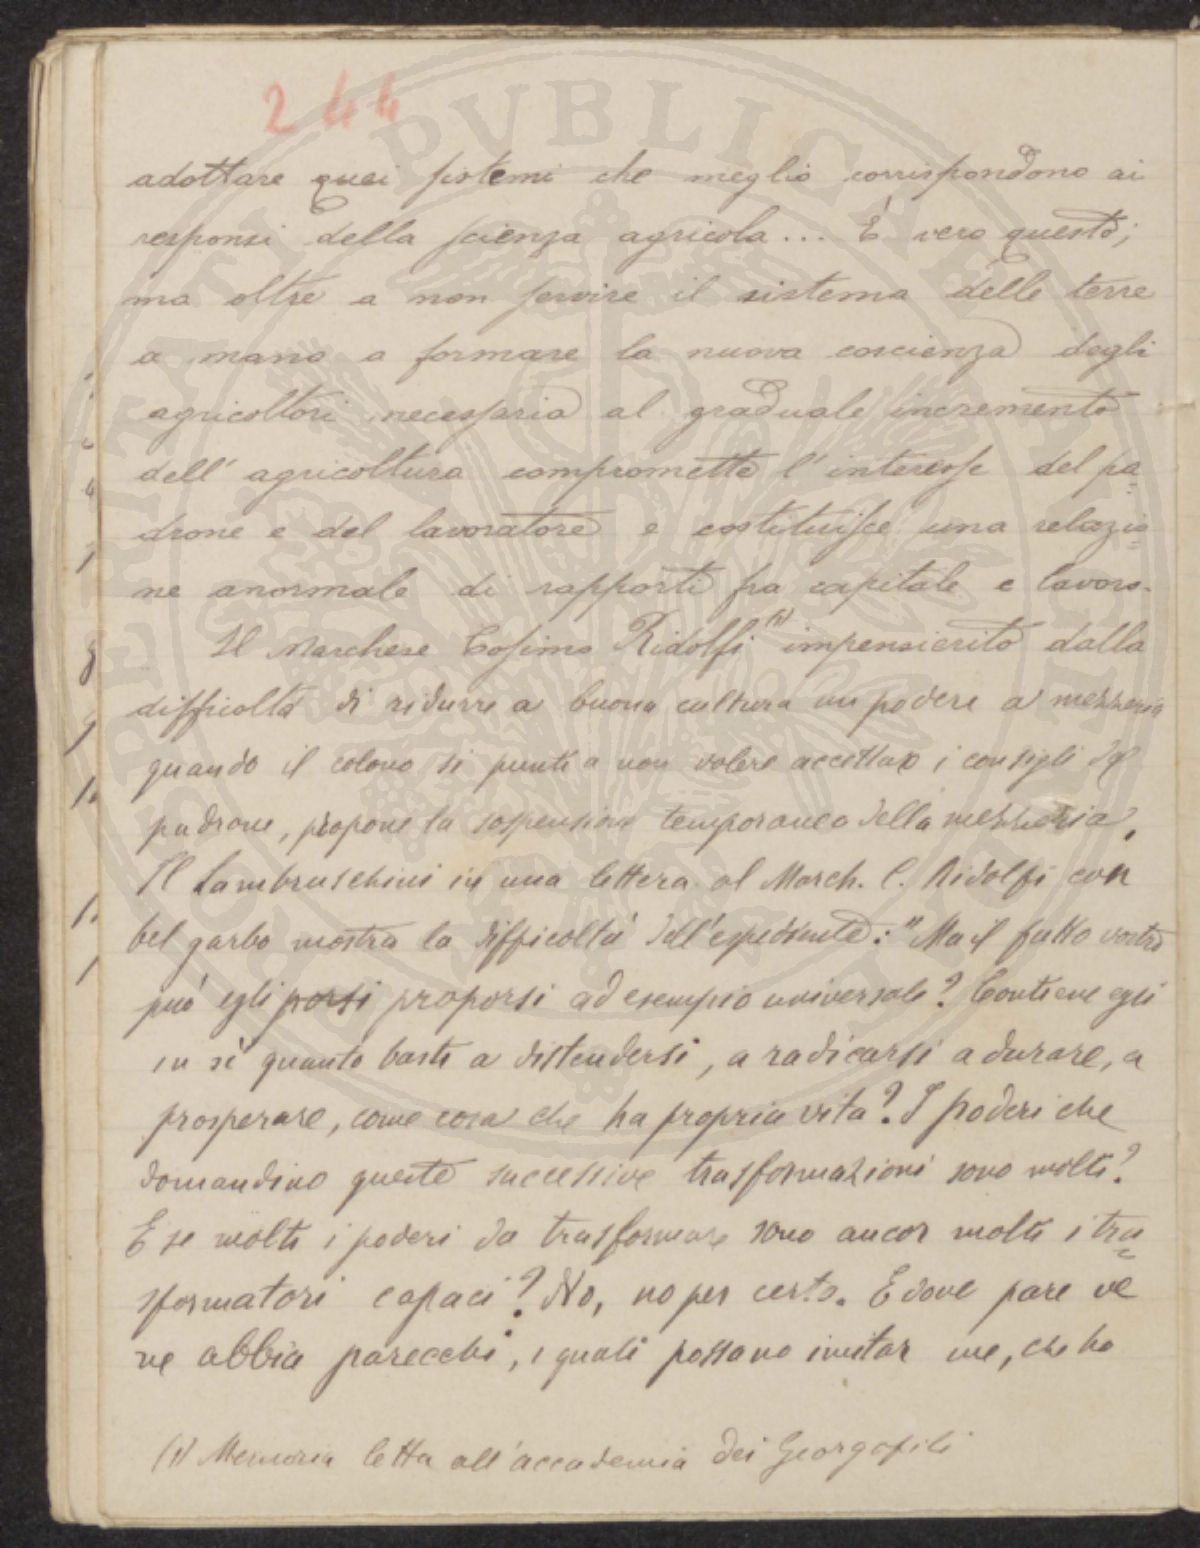 244
adottare quei sistemi che meglio corrispondono ai
responsi della scienza agricola... È vero questo;
ma oltre a non servire il sistema delle terre
a mano a formare la nuova coscienza degli
agricoltori necessaria al graduale incremento
dell'agricoltura compromette l'interesse del pa=
drone e del lavoratore e costituisce una relazio=
ne anormale di rapporti fra capitale e lavoro.
Il Marchese Cosimo Ridolfi (1) impensierito dalla
difficoltà di ridurre a buona cultura un podere a mezzeria
quando il colono si punti a non volere accettare i consigli del
padrone, propone la sospensione temporanea della mezzeria.
Il Lambruschini in una lettera al March. C. Ridolfi con
bel garbo mostra la difficoltà dell'espediente: "Ma il fatto vostro
può egli porsi proporsi ad esempio universale? Contiene egli
in sè quanto basti a distendersi, a radicarsi a durare, a
prosperare, come cosa che ha propria vita? I poderi che
domandino queste successive trasformazioni sono molti?
E se molti i poderi da trasformare sono ancor molti i tra=
sformatori capaci? No, no per certo. E dove pare ve
ne abbia parecchi, i quali possano imitar me, che ho
(1) Memoria letta all'accademia dei Georgofili